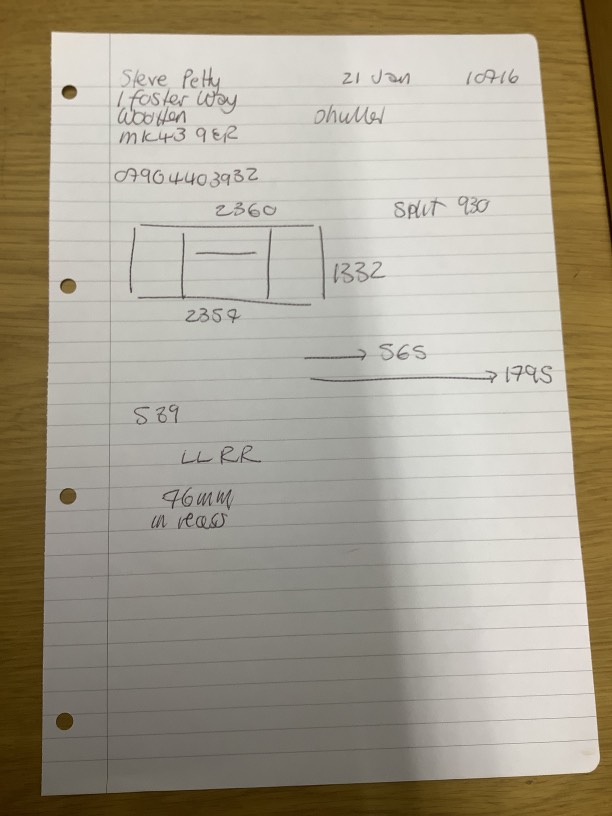 Steve Petty 21 Jan 10716
1 foster Way
Wootten Shutter
MK43 9ER
07904403932
2360 Split 930
1332
2357
→ 565
→ 1795
S39
LL RR
76mm
in recess